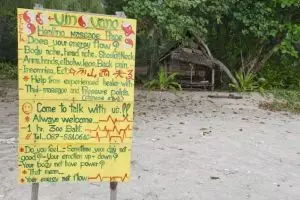 Yin Yang
Healing Massage Place
Does your energy flow?
Body ache, head ache, Shoulder, Neck
Arms, hands, elbow, leg, Back pain
Insomnia, Ect
• Help from experienced healer with
Thai-massage and Pressure points
Come to talk with us
• Always welcome
• 1 hr. 300 Baht.
• Tel.
• Do you feel - Sometime your day not
good? - Your emotion up - down?
Your body not have power?
• That mean...
Your energy not flow